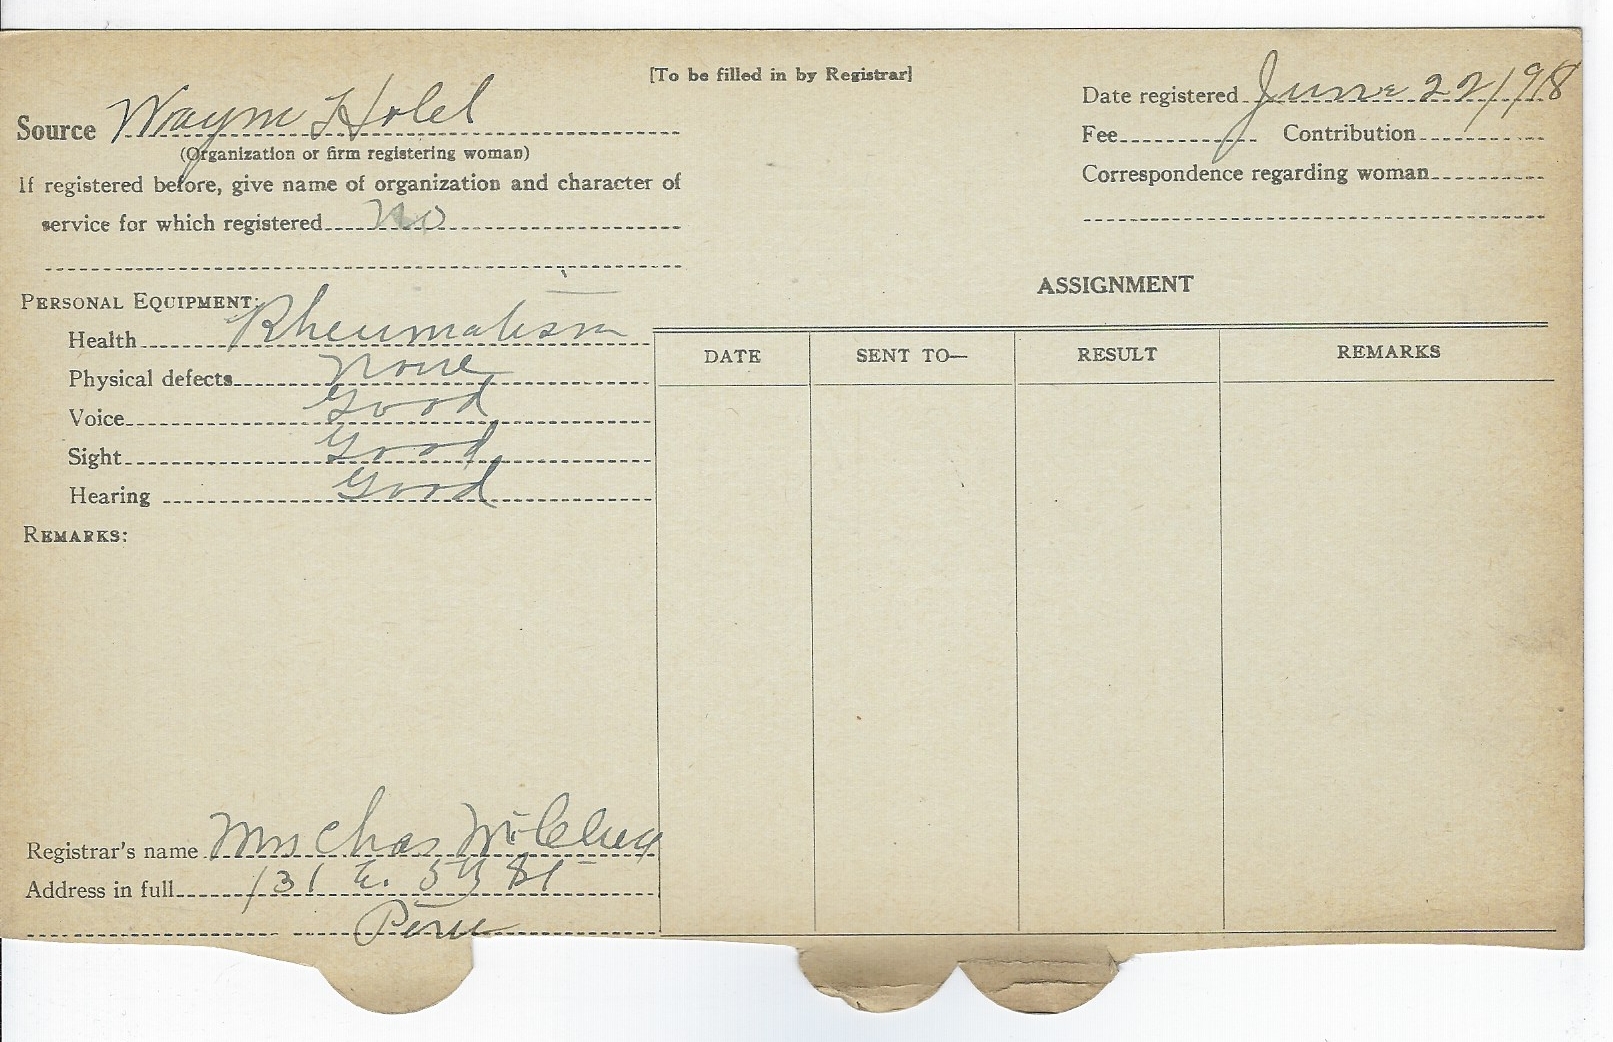 [To be filled in by Registrar]
Source Wayne Hotel
(Organization or firm registering woman)
If registered before, give name of organization and character of
service for which registered No
Date registered June 22 1918
Fee Contribution
Correspondence regarding woman
PERSONAL EQUIPMENT:
Health Rheumatism
Physical defects None
Voice Good
Sight Good
Hearing Good
REMARKS:
ASSIGNMENT
DATE SENT TO— RESULT REMARKS
Registrar's name Mrs Chas
Address in full 131 E. 5th St
Peru